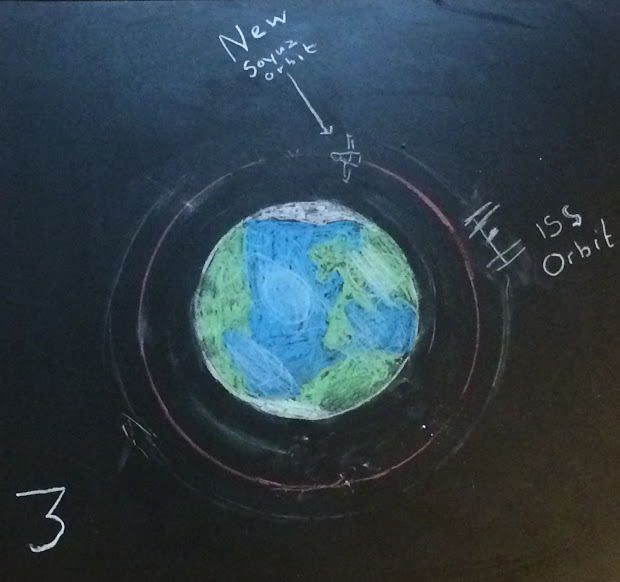 New
Soyuz
orbit
ISS
Orbit
3